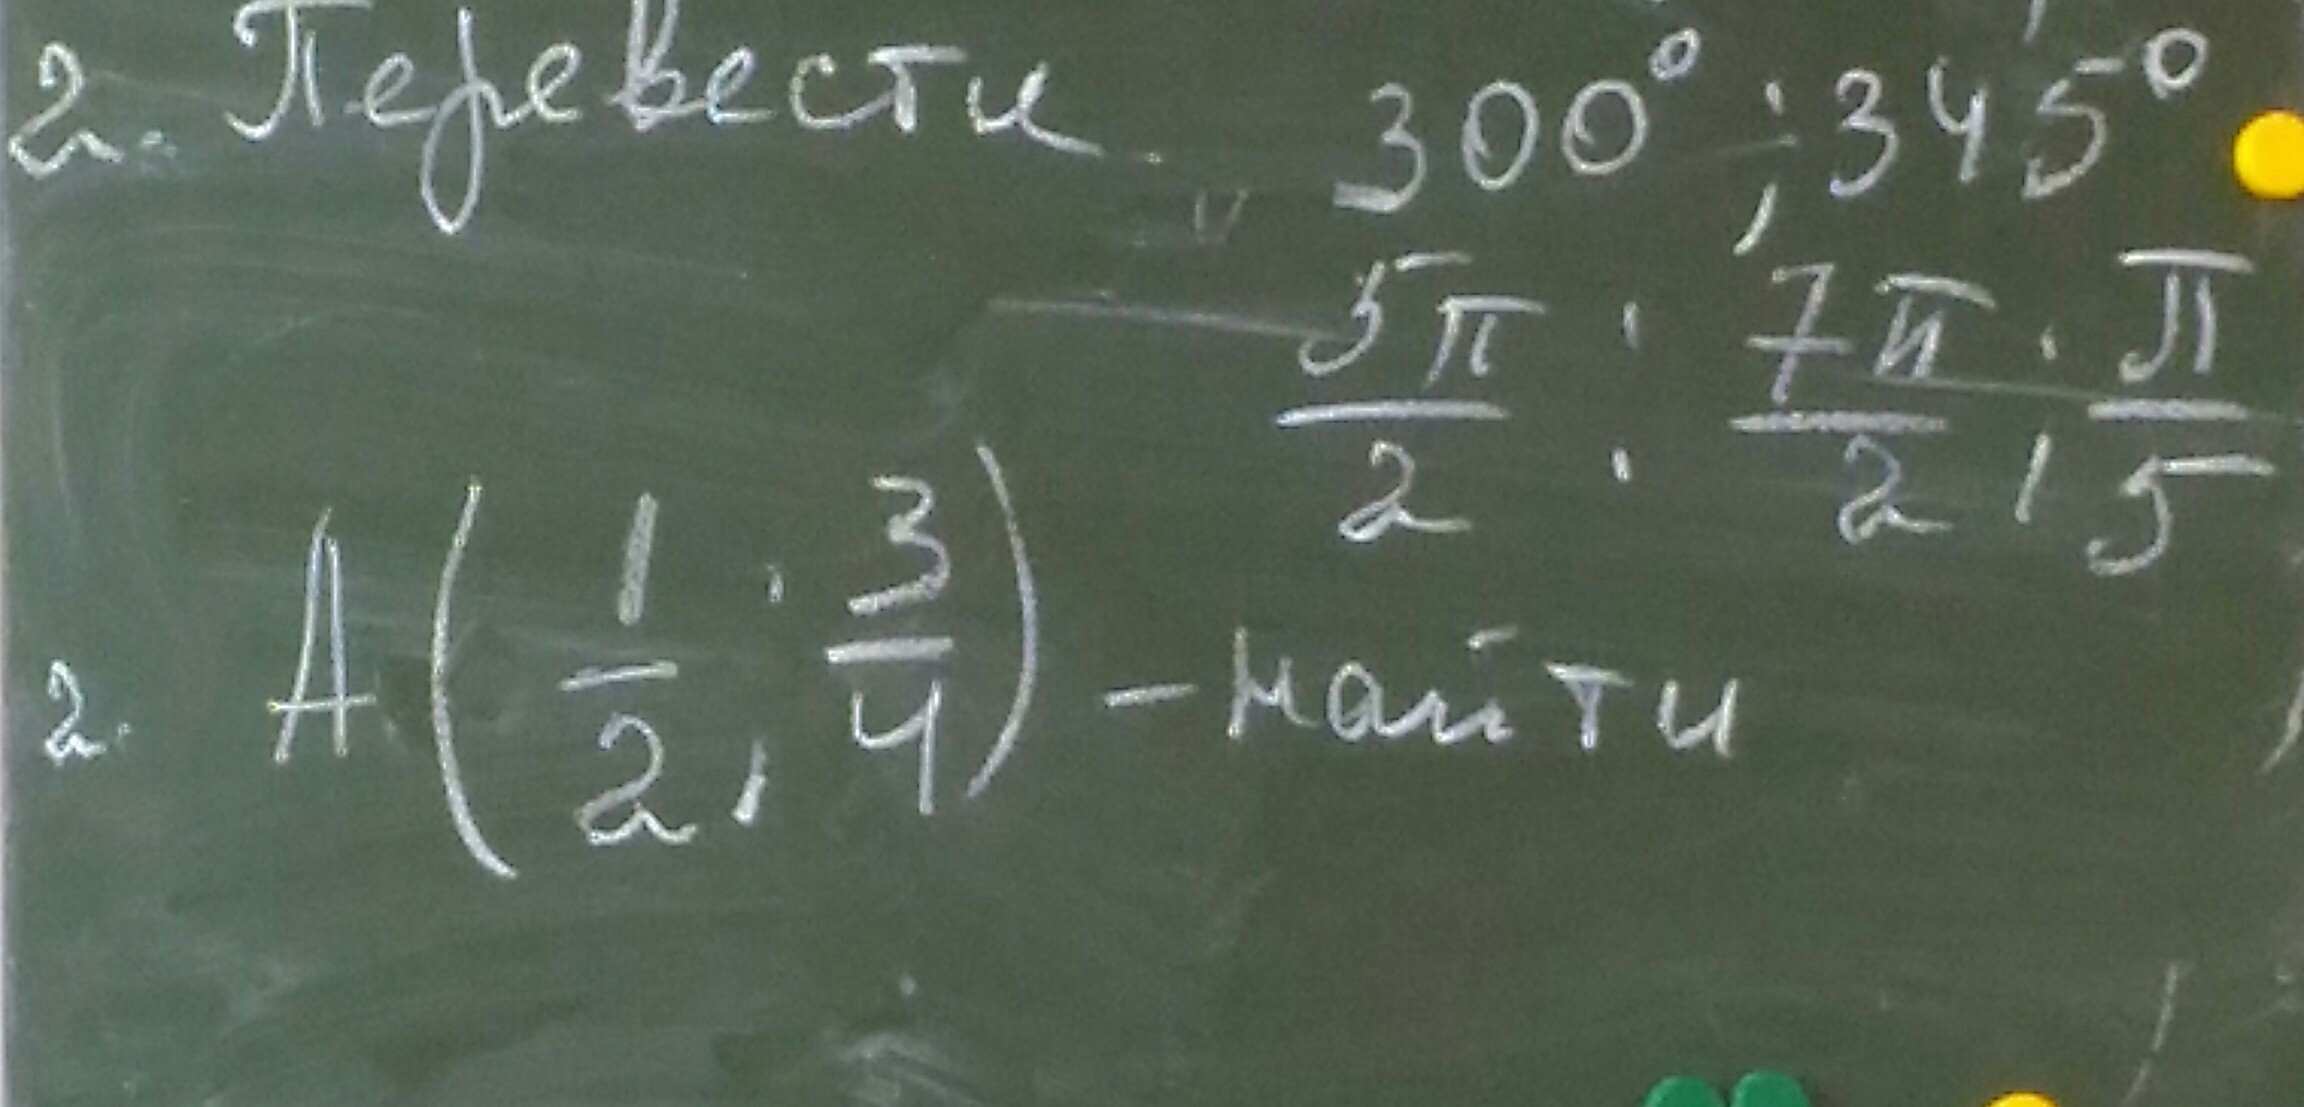 2. Перевести 300°; 345°
5π/2; 7π/2; π/5
2. A(1/2; 3/4) - найти